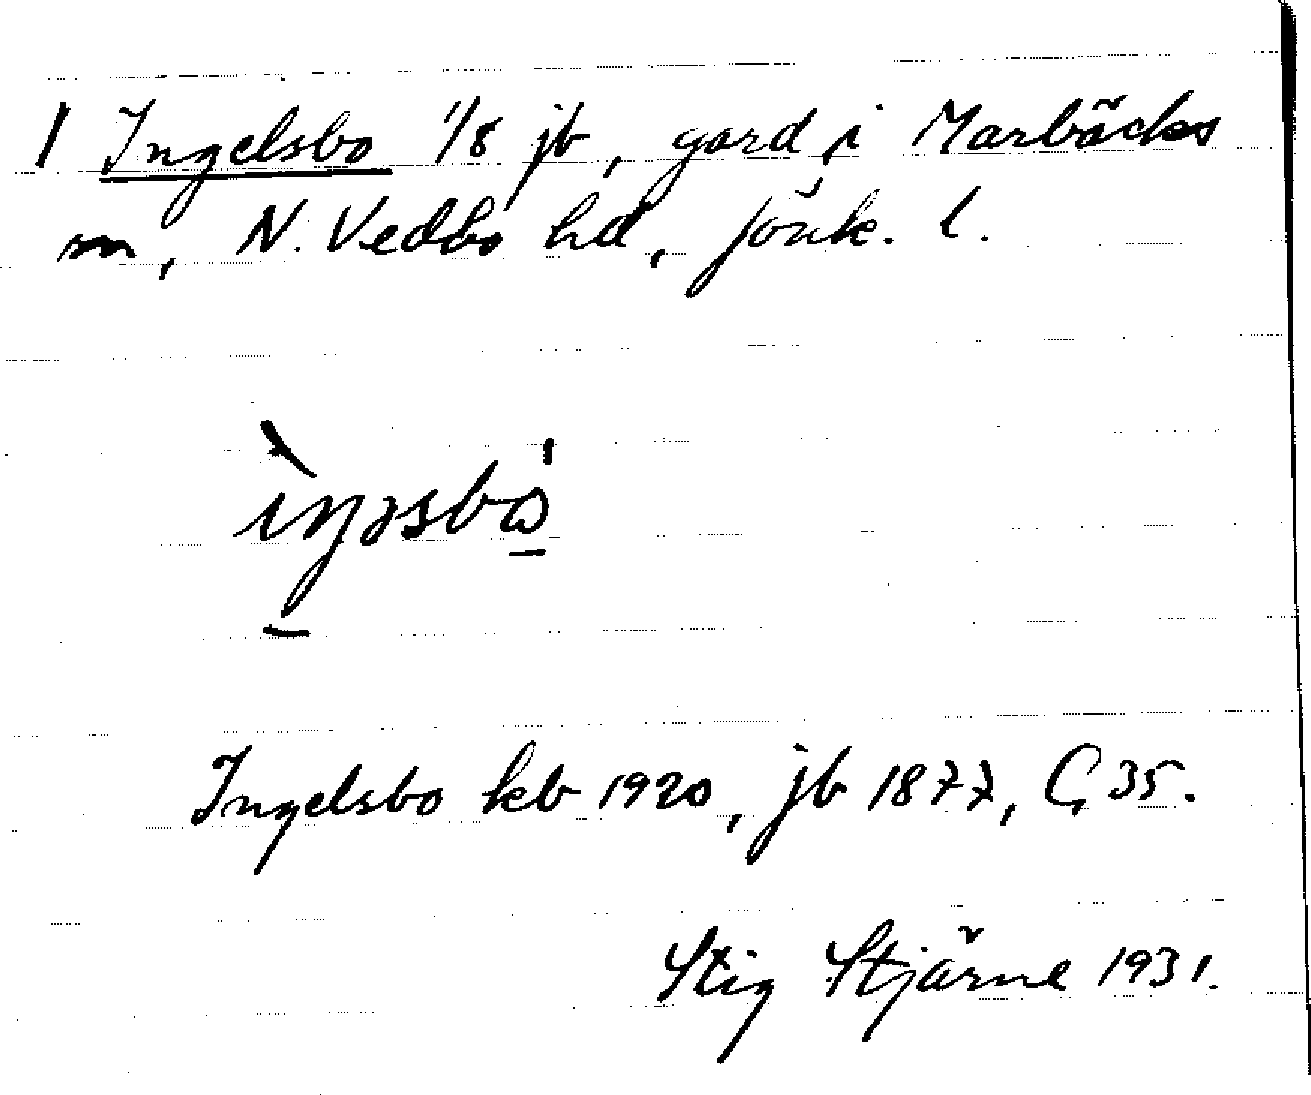 1 Ingelsbo 1/8 jb, gård i Marbäcks
sn, N. Vedbo hd, Jönk. l.
Ingelsbo kb 1920, jb 1877, G 35.
Stig Stjärne 1931.